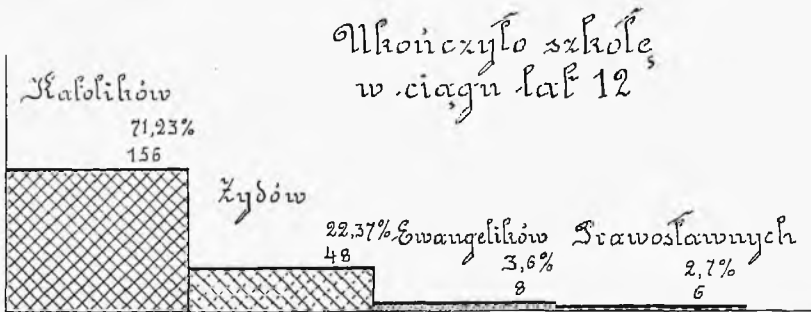 Ukończyło szkołę
w ciągu lat 12
Katolików
71,23%
156
Żydów
22,37%
48
Ewangelików
3,6%
8
Prawosławnych
2,7%
6